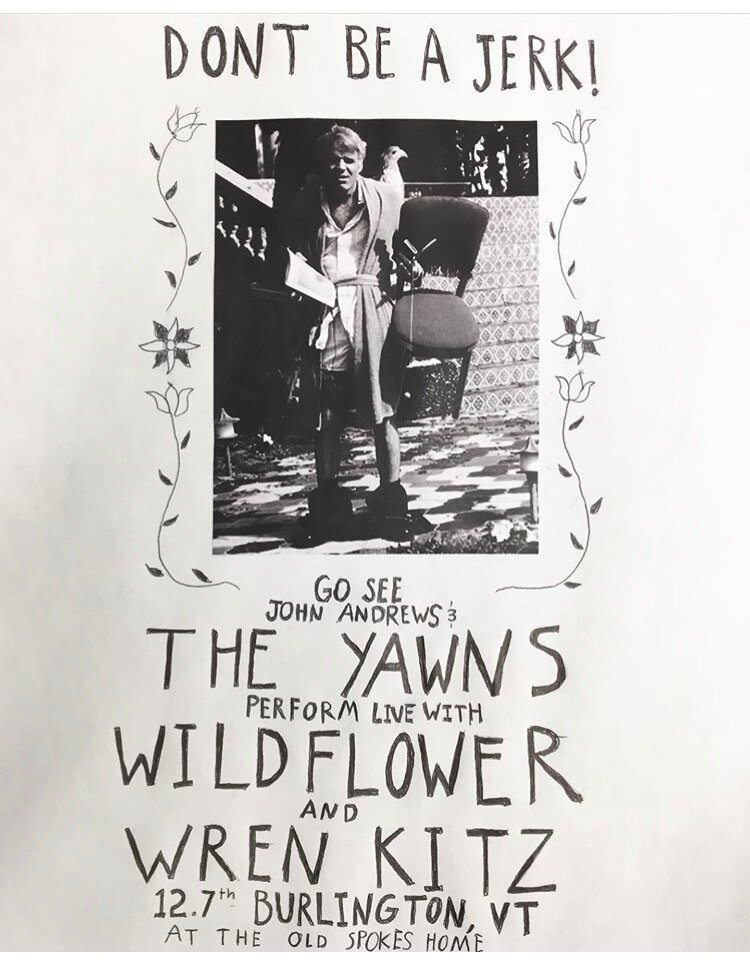 DONT BE A JERK!
GO SEE
JOHN ANDREWS &
THE YAWNS
PERFORM LIVE WITH
WILDFLOWER
AND
WREN KITZ
12.7th BURLINGTON, VT
AT THE OLD SPOKES HOME